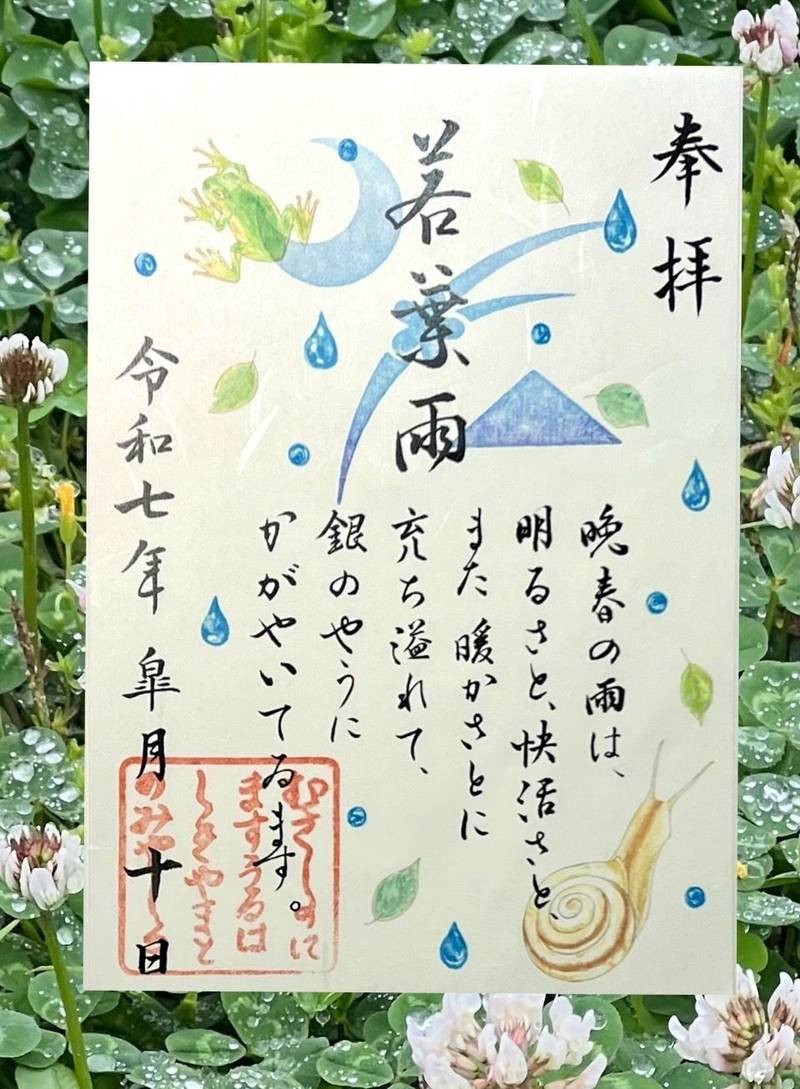 奉拝
若葉雨
晩春の雨は、
明るさと、快活さと、
また 暖かさとに
充ち溢れて、
銀のやうに
かがやいてゐます。
令和七年 皐月十日
むさしのに
ますうるは
しきやまと
のみや